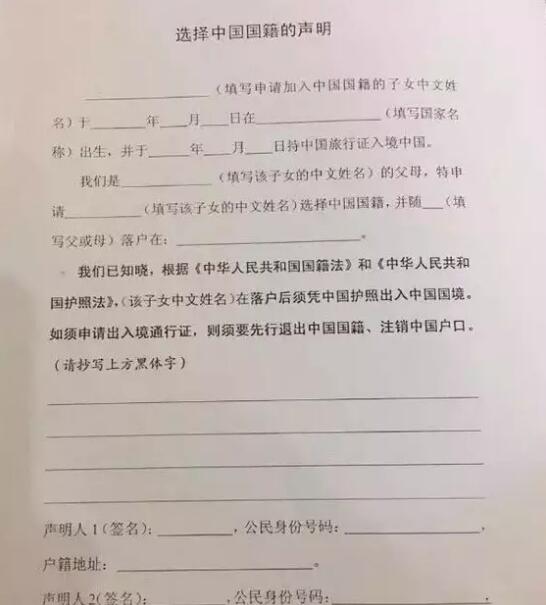 选择中国国籍的声明
__________（填写申请加入中国国籍的子女中文姓
名）于______年___月___日在____________（填写国家名
称）出生，并于_____年___月___日持中国旅行证入境中国。
我们是__________（填写该子女的中文姓名）的父母，特申
请________（填写该子女的中文姓名）选择中国国籍，并随__（填
写父或母）落户在：________________。
我们已知晓，根据《中华人民共和国国籍法》和《中华人民共和
国护照法》，（该子女中文姓名）在落户后须凭中国护照出入中国国境。
如须申请出入境通行证，则须要先行退出中国国籍、注销中国户口。
（请抄写上方黑体字）
声明人1（签名）：________，公民身份号码：______________，
户籍地址：__________________。
声明人2（签名）：________，公民身份号码：______________，